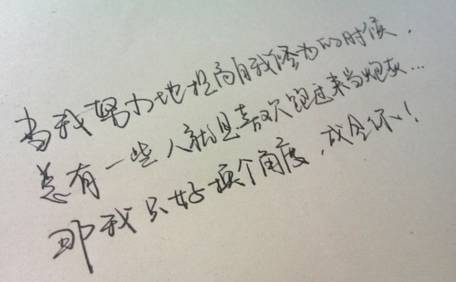 当我努力地提高自我修为的时候，
总有一些人就是喜欢跑过来当炮灰…
那我只好换个角度，成全你！